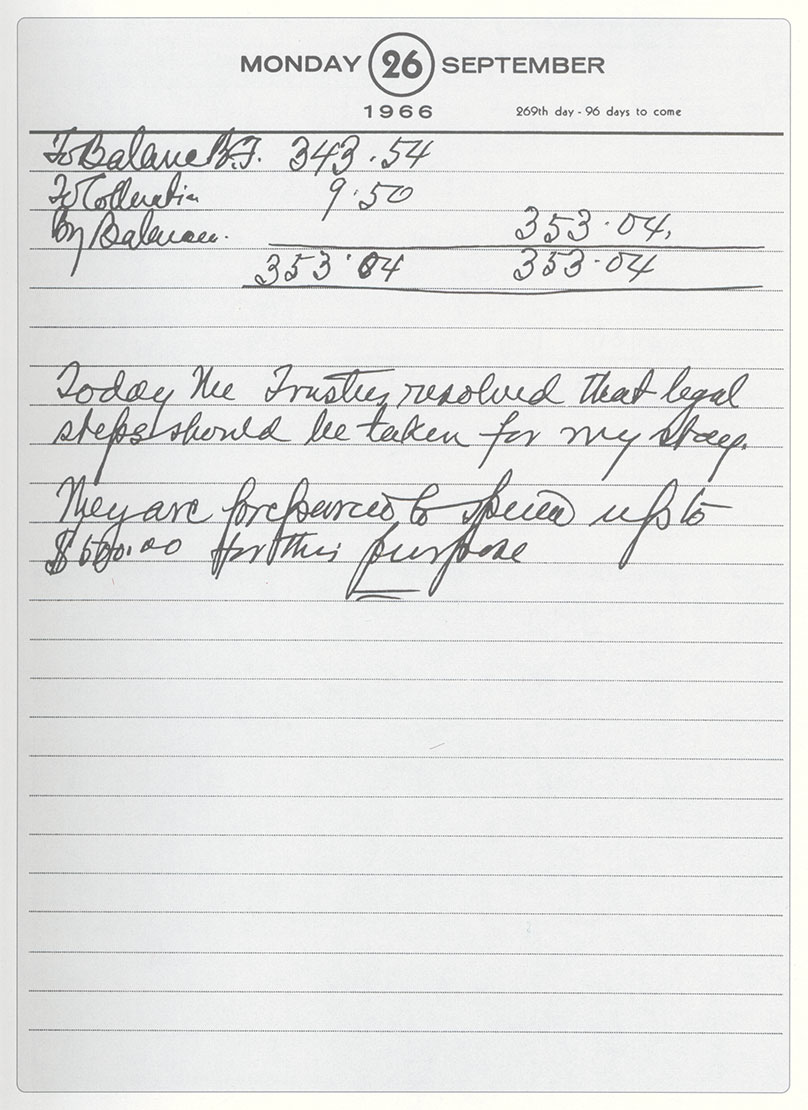 MONDAY 26 SEPTEMBER
1966 269th day - 96 days to come
To Balance B.F. 343.54
To Collection 9.50
By Balance. 353.04
353.04 353.04
Today the Trustees resolved that legal
steps should be taken for my stay.
They are prepared to spend up to
$500.00 for this purpose